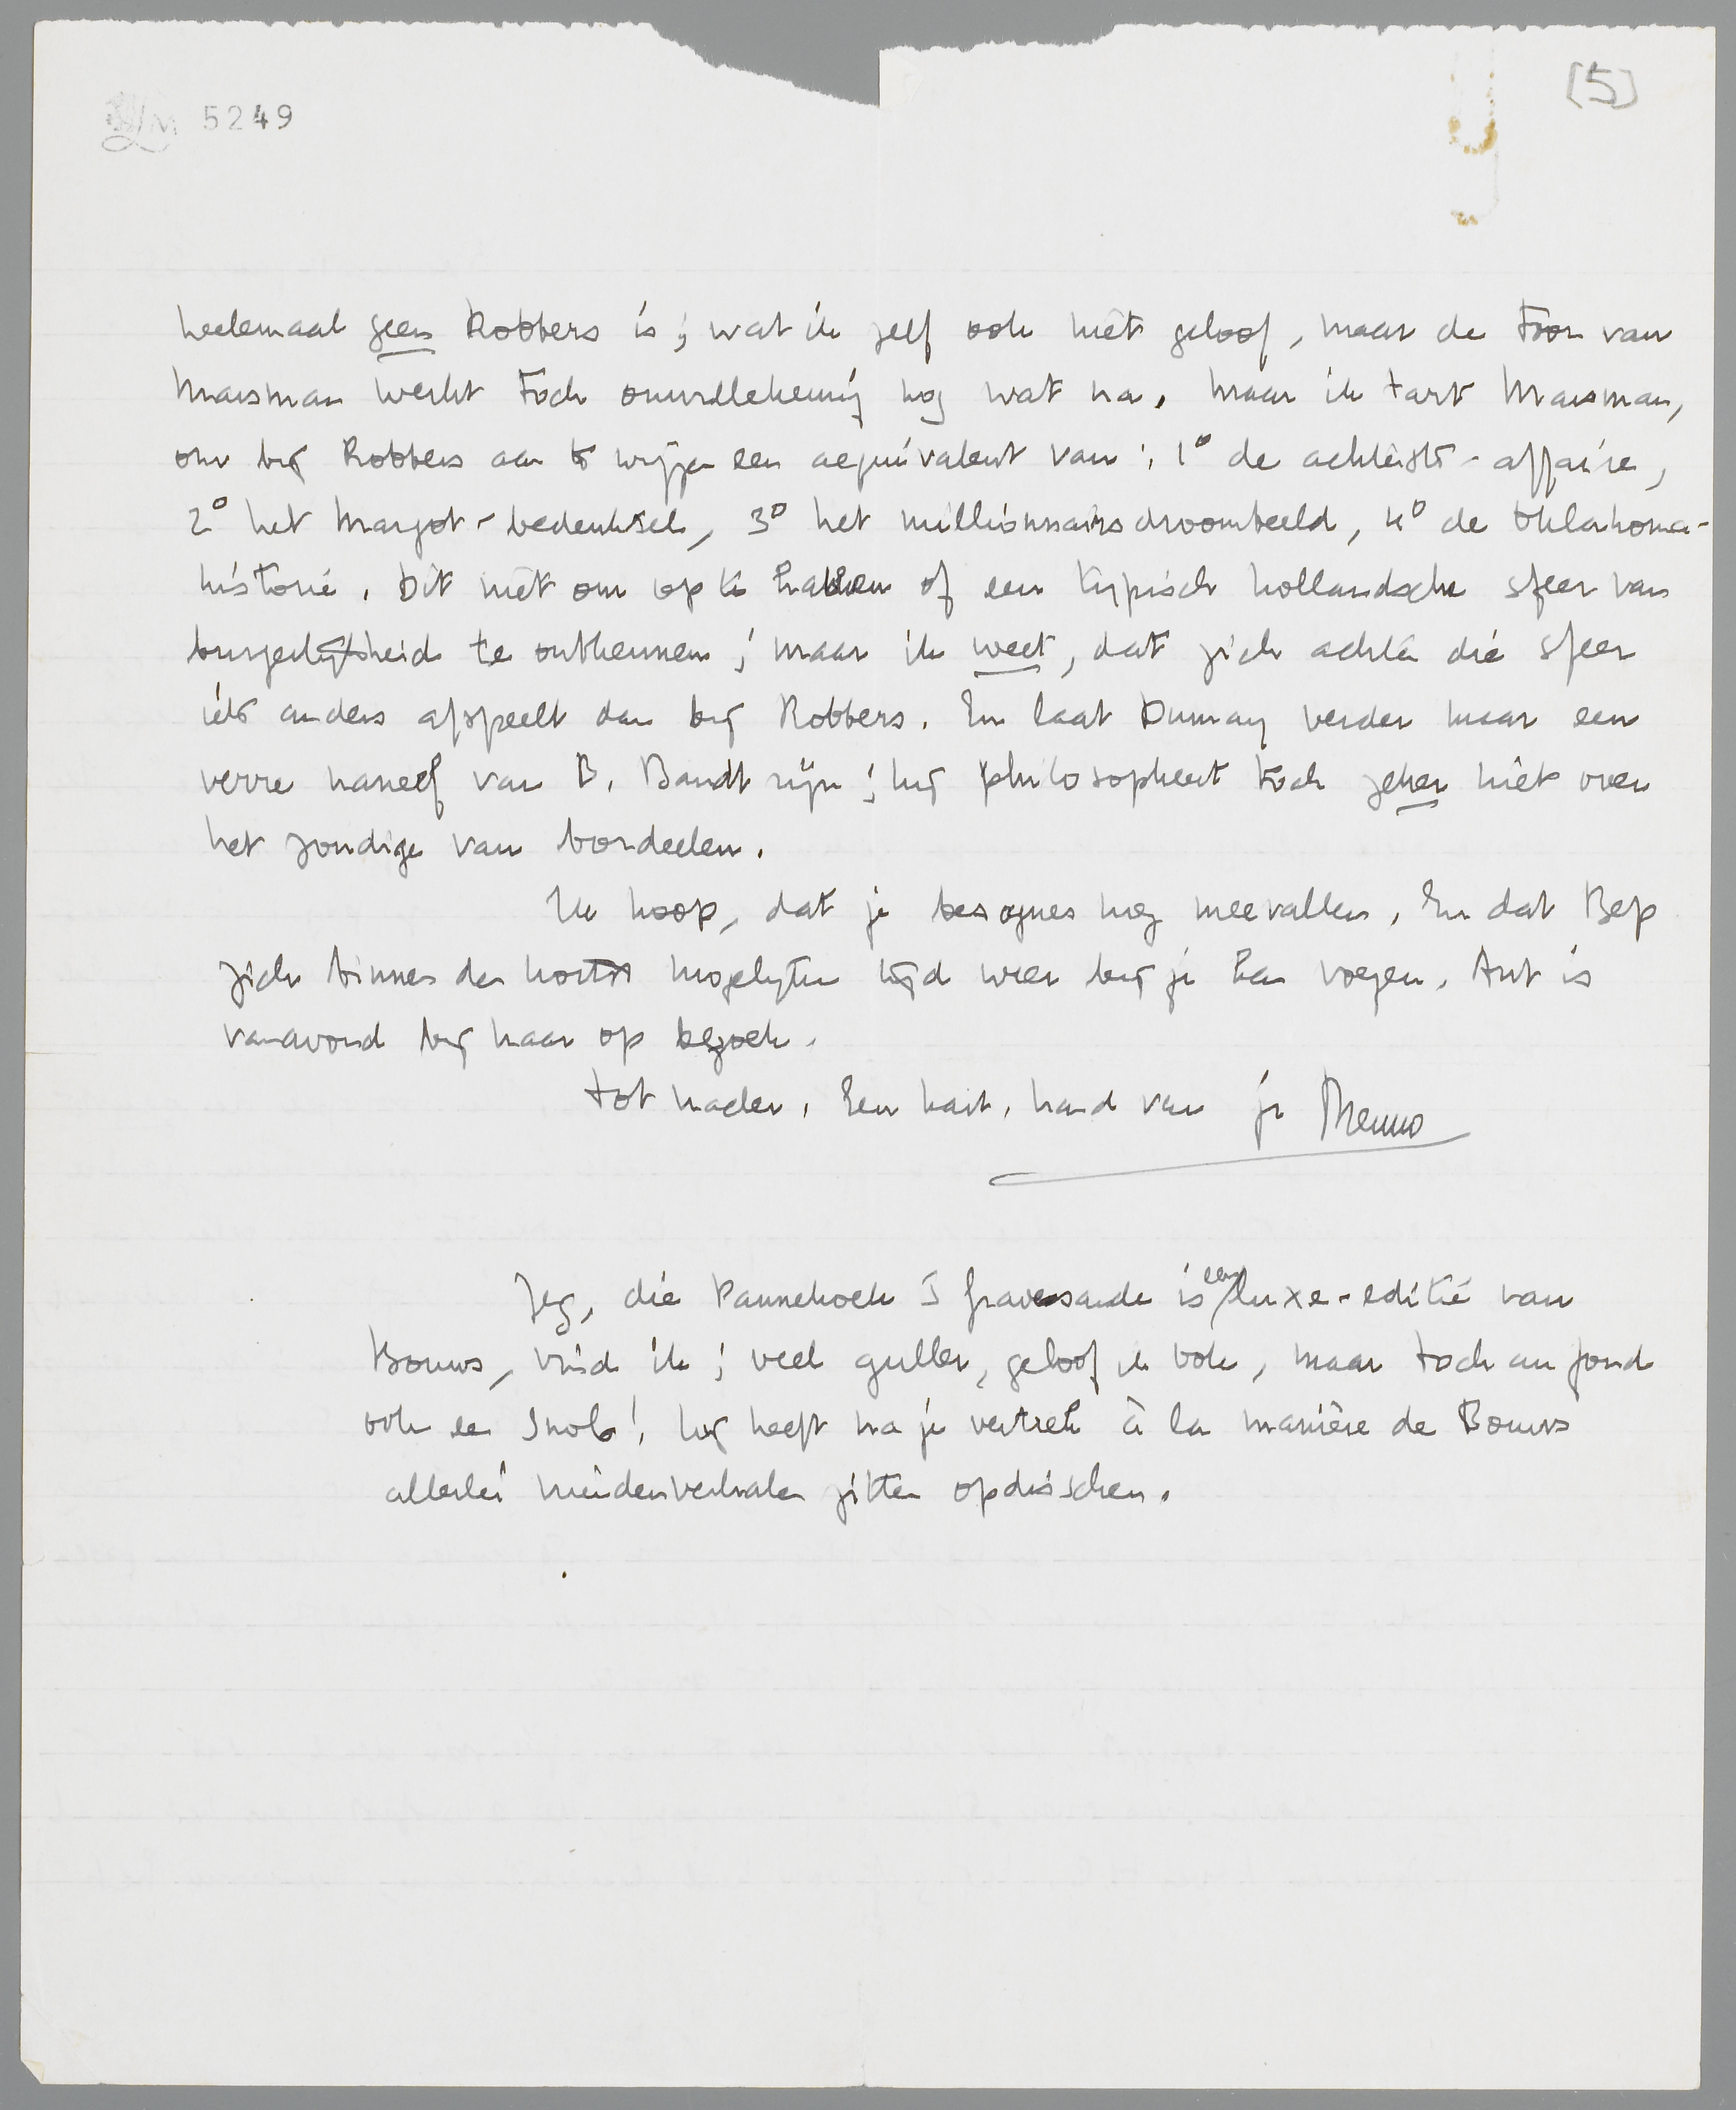 LM 5249
[5]
heelemaal geen Robbers is; wat ik zelf ook niet geloof, maar de toon van
Marsman werkt toch onwillekeurig nog wat na. Maar ik tart Marsman,
om bij Robbers aan te wijzen een aequivalent van: 1° de achterste-affaire,
2° het Margot-bedenksel, 3° het millionnairsdroombeeld, 4° de Oklahoma-
historie. Dit niet om op te hakken of een typisch hollandsche sfeer van
burgerlijkheid te ontkennen; maar ik weet, dat zich achter die sfeer
iets anders afspeelt dan bij Robbers. En laat Dumay verder maar een
verre naneef van B. Bandt zijn; hij philosopheert toch zeker niet over
het zondige van bordeelen.
Ik hoop, dat je besognes nog meevallen. En dat Bep
zich binnen den kortst mogelijken tijd weer bij je kan voegen. Ant is
vanavond bij haar op bezoek.
Tot nader. Een hart. hand van je Menno
Zeg, die Pannekoek 's Gravesande is een luxe-editie van
Bouws, vind ik; veel guller, geloof ik ook, maar toch au fond
ook een snob! Hij heeft na je vertrek à la manière de Bouws
allerlei meidenverhalen zitten opdisschen.